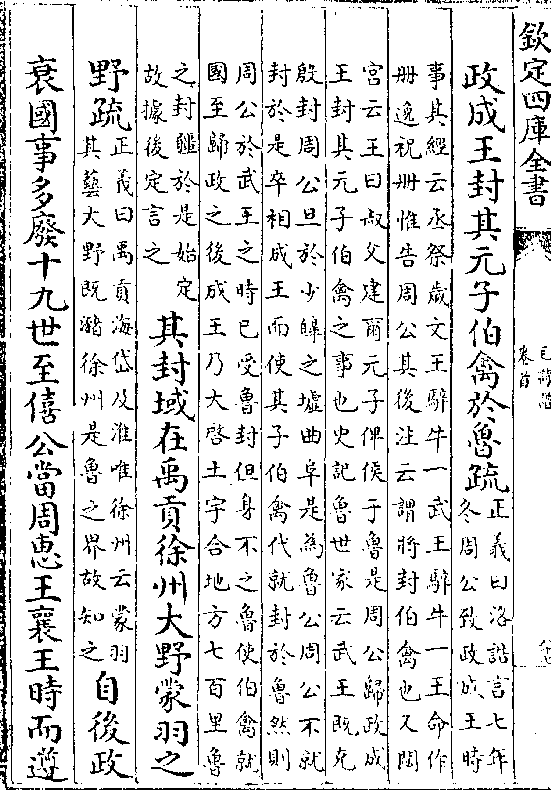 欽定四庫全書
毛詩譜
卷首
政成王封其元子伯禽於魯疏正義曰洛誥言七年
冬周公致政成王時
事其經云丞祭歲文王騂牛一武王騂牛一王命作
册逸祝册惟告周公其後注云謂將封伯禽也又閟
宮云王曰叔父建爾元子俾侯于魯是周公歸政成
王封其元子伯禽之事也史記魯世家云武王既克
殷封周公旦於少皥之墟曲阜是為魯公周公不就
封於是卒相成王而使其子伯禽代就封於魯然則
周公於武王之時已受魯封但身不之魯使伯禽就
國至歸政之後成王乃大啓土宇合地方七百里魯
之封疆於是始定
故據後定言之
其封域在禹貢徐州大野蒙羽之
野疏正義曰禹貢海岱及淮唯徐州云蒙羽
其藝大野既瀦徐州是魯之界故知之
自後政
衰國事多廢十九世至僖公當周惠王襄王時而遵